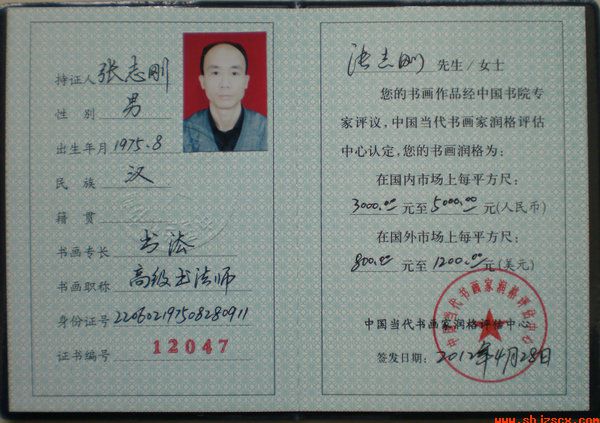 持证人 张志刚
性 别 男
出生年月 1975.8
民 族 汉
籍 贯
书画专长 书法
书画职称 高级书法师
身份证号 220602197508280911
证书编号 12047
张志刚 先生/女士
您的书画作品经中国书院专
家评议,中国当代书画家润格评估
中心认定,您的书画润格为:
在国内市场上每平方尺:
3000.00 元至 5000.00 元(人民币)
在国外市场上每平方尺:
800.00 元至 1200.00 元(美元)
中国当代书画家润格评估中心
中国当代书画家润格评估中心
签发日期: 2012年4月28日
www.shjzscx.com